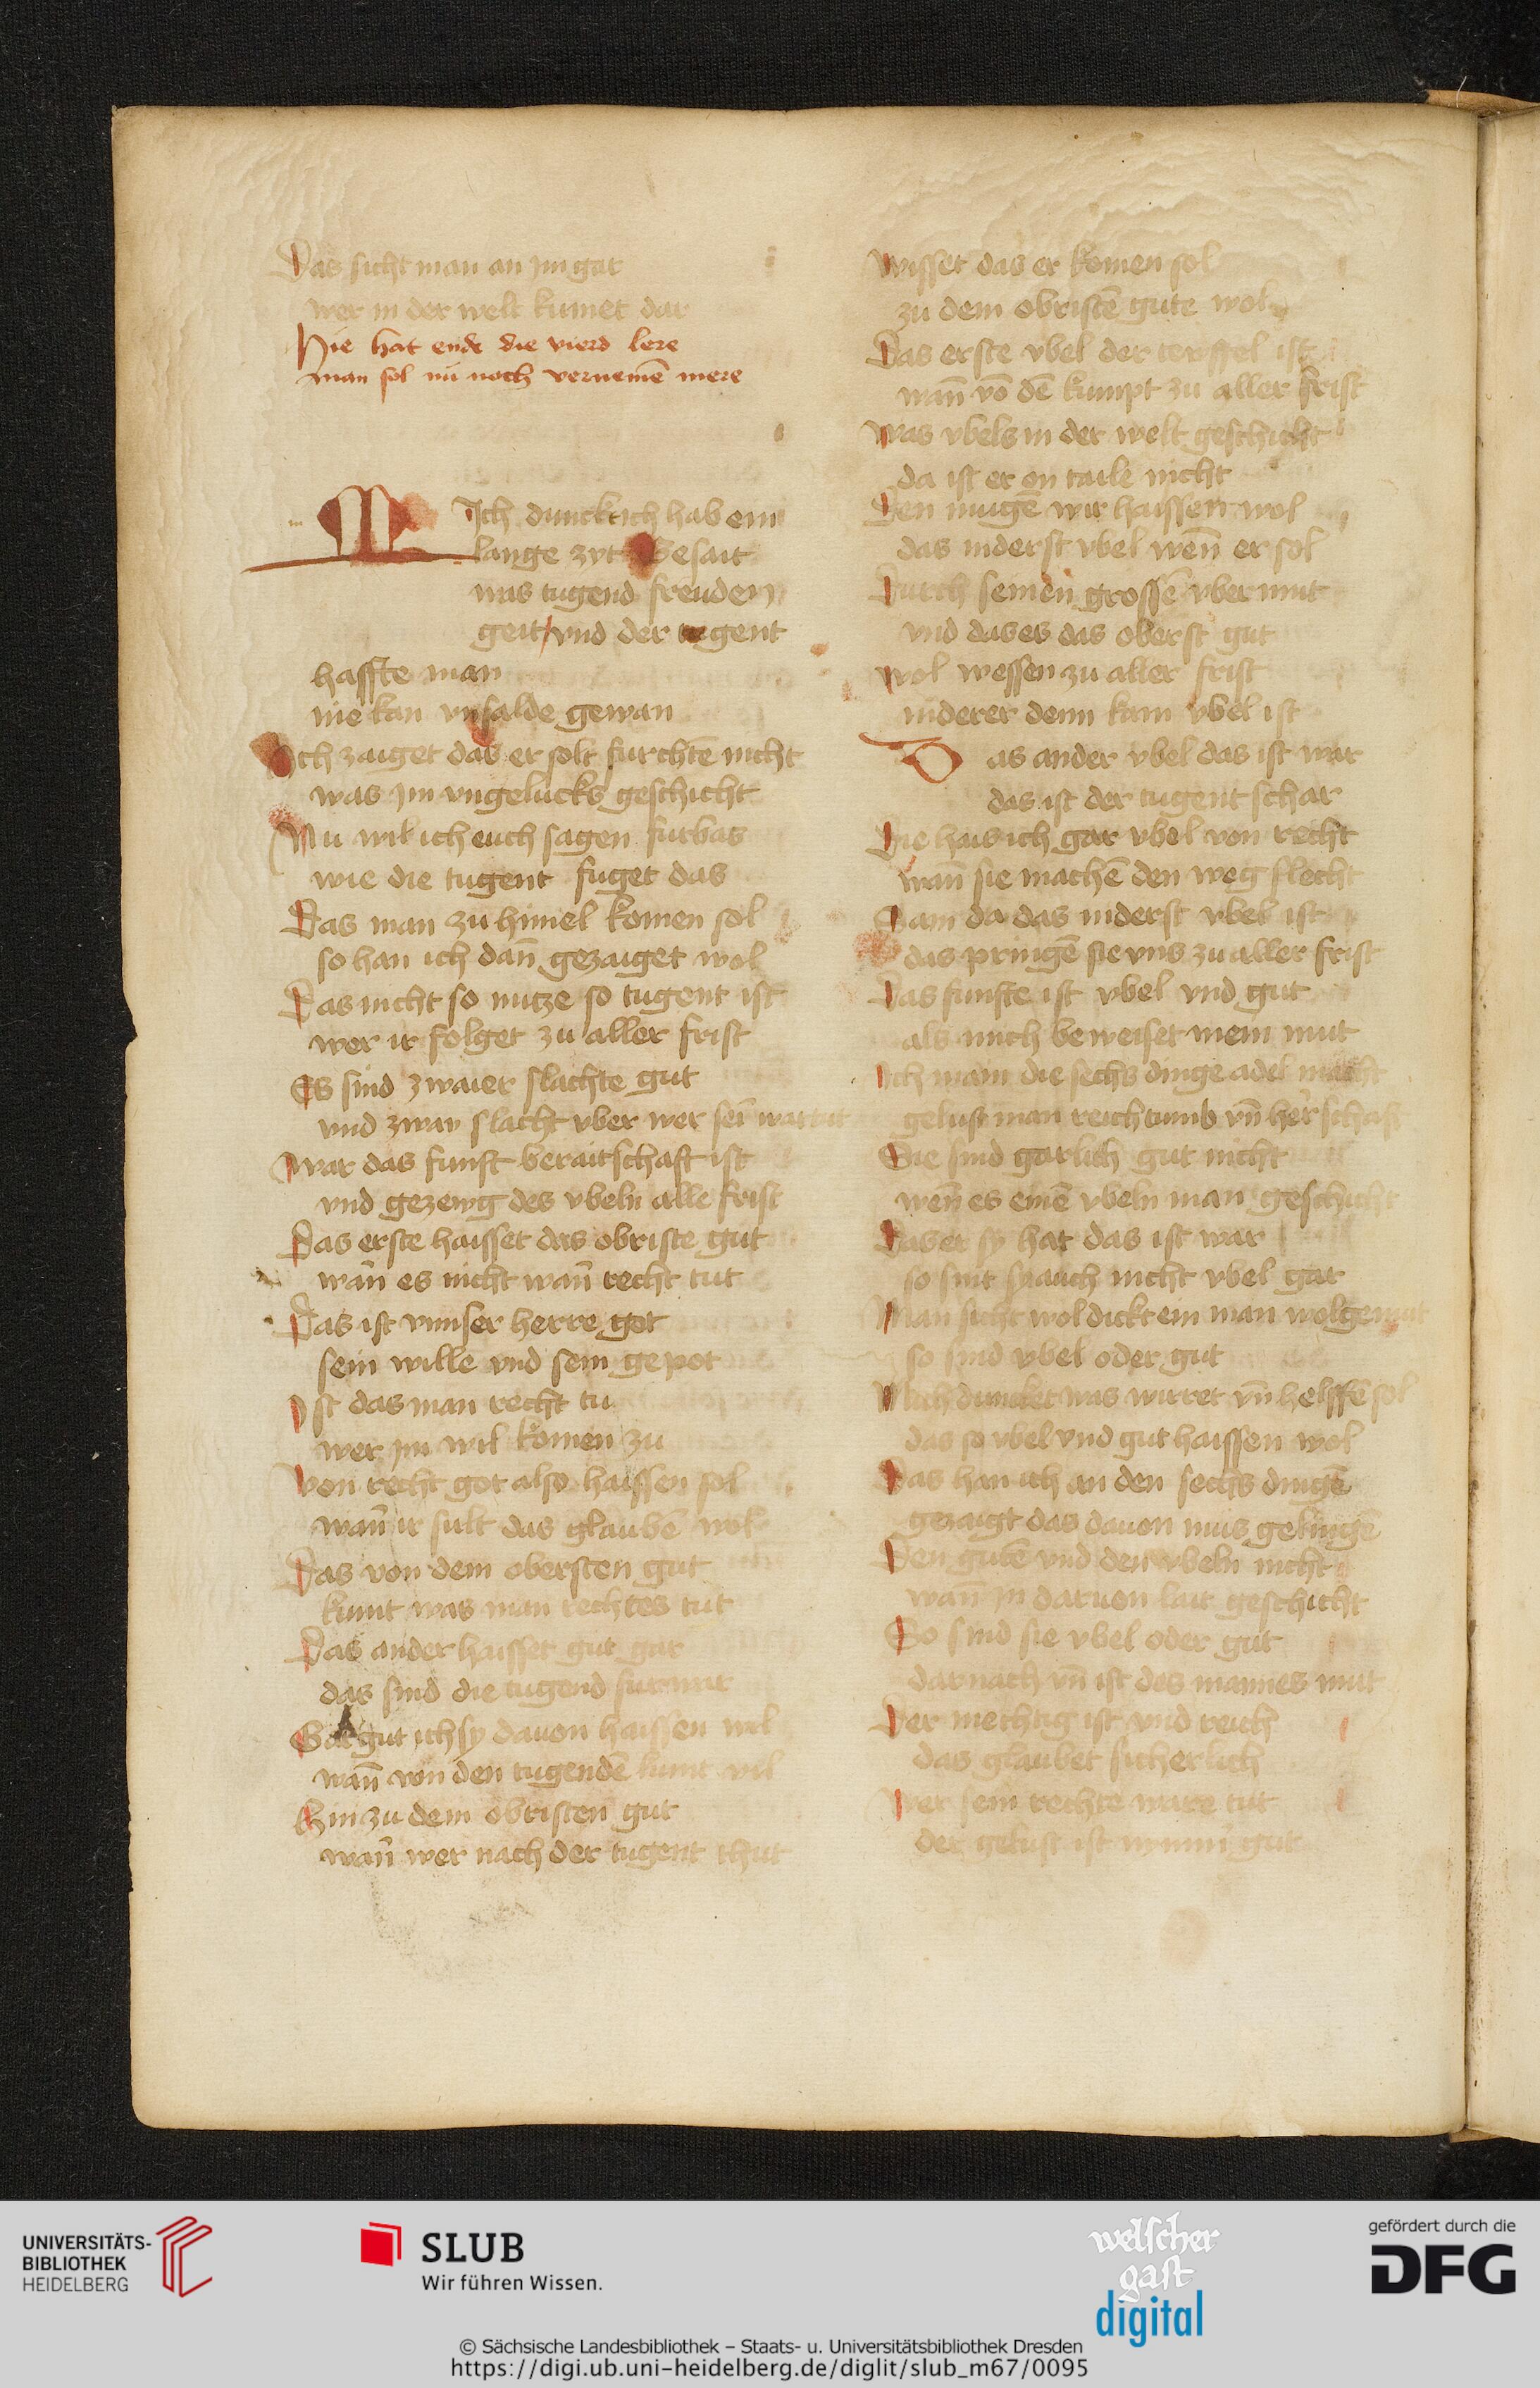 Das sicht man an im gar
wer in der welt kumet dar
Hie hat ende die vierd lere
man sol nu noch vernemē mere
MIch dunckt ich hab ein
lange zyt Gesait
was tugend freuden
geit vnd der tugent
haffte man
nie kan vnsalde gewan
Ich zaiget das er solt furchtē nicht
was im vngelucks geschicht
Nu wil ich euch sagen furbas
wie die tugent fuget das
Das man zu himel komen sol
so han ich dan̄ gezaiget wol
Das nicht so nutze so tugent ist
wer ir folget zu aller frist
Es sind zwaier slachte gut
vnd zway slacht vber wer sei
war das funft beraitschaft ist
vnd gezewg des vbeln alle frist
Das erste haisset das obriste gut
wan̄ es nicht wan̄ recht tut
Das ist vnnser herre got
sein wille vnd sein gepot
Ist das man recht tu
wer im wil komen zu
von recht got also haissen sol
wan̄ ir sult das glaubē wol
Das von dem obersten gut
kumt was man rechtes tut
Das ander haisset gut gar
das sind die tugend furwar
Gar gut ich sy dauon haissen wil
wan̄ von den tugendē kumt vil
Hin zu dem obristen gut
wan̄ wer nach der tugent thut
wisset das er komen sol
zu dem obristē gute wol
Das erste vbel der tewffel ist
wan̄ vō dē kumpt zu aller frist
was vbels in der welt geschicht
da ist er on taile nicht
Den mugē wir haissen wol
das niderst vbel wen̄ er sol
Durch seinen grossē vbermut
vnd das es das oberst gut
wol wessen zu aller frist
niderer denn kain vbel ist
Das ander vbel das ist war
das ist der tugent schar
Die hais ich gar vbel von recht
wan̄ sie machē den weg slecht
Sam da das niderst vbel ist
das pringē sie vns zu aller frist
Das funfte ist vbel vnd gut
als mich beweiset mein mut
Ich main die sechs dinge adel macht
gelust man reichtumb vn̄ herschaft
Die sind garlich gut nicht
wen̄ es einē vbeln man geschicht
Das er sy hat das ist war
so sint sy auch nicht vbel gar
Man sicht wol dickt ein man wolgemut
so sind vbel oder gut
Mich duncket was wirret vn̄ helffē sol
das so vbel vnd gut haissen wol
Das han ich an den sechs dingē
gezaigt das dauon mus gelingē
Den gutē vnd den vbeln nicht
wan̄ in daruon lait geschicht
So sind sie vbel oder gut
darnach vn̄ ist des mannes mut
Der mechtig ist vnd reich
das glaubet sicherlich
Wer sein rechte ware tut
der gelust ist nymm̄ gut
UNIVERSITÄTS-
BIBLIOTHEK
HEIDELBERG
SLUB
Wir führen Wissen.
welscher
gast
digital
gefördert durch die
DFG
© Sächsische Landesbibliothek – Staats- u. Universitätsbibliothek Dresden
https://digi.ub.uni-heidelberg.de/diglit/slub_m67/0095